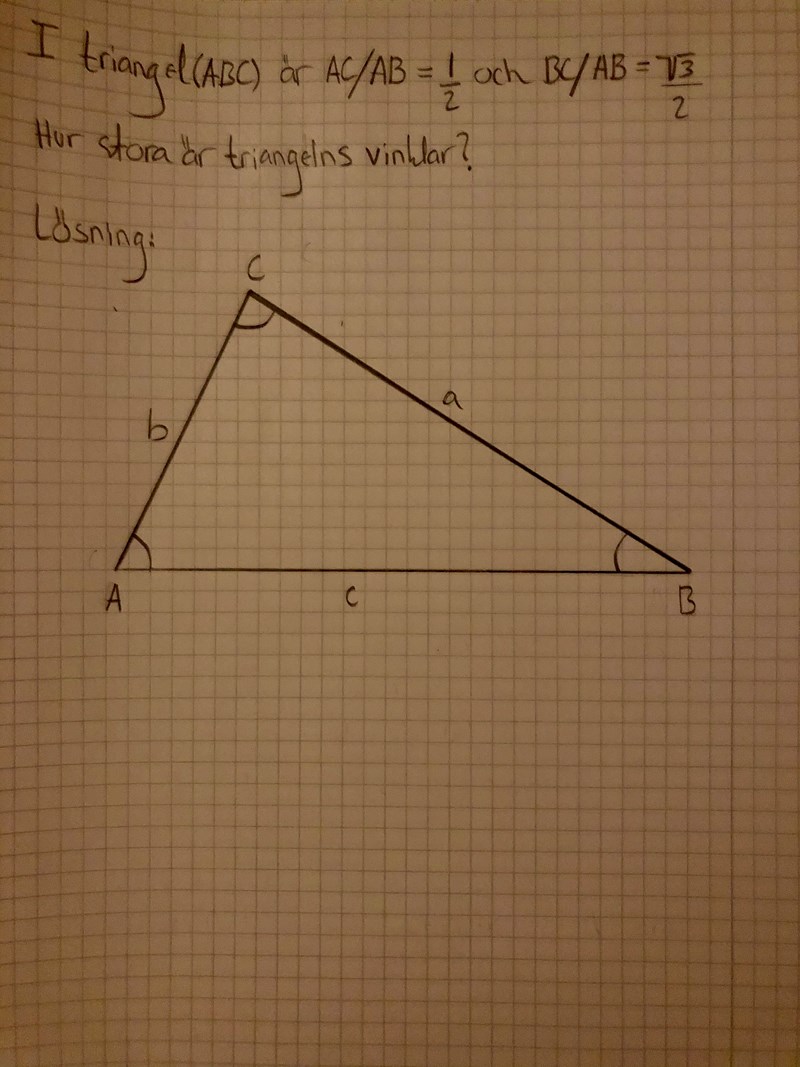 I triangel(ABC) är AC/AB = 1/2 och BC/AB = √3/2
Hur stora är triangelns vinklar?
Lösning:
C
a
b
A
c
B